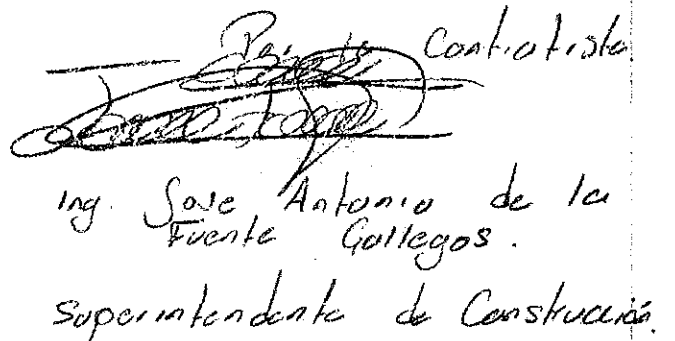 Por la Contratista
Ing. Jose Antonio de la
Fuente Gallegos.
Superintendente de Construcción.